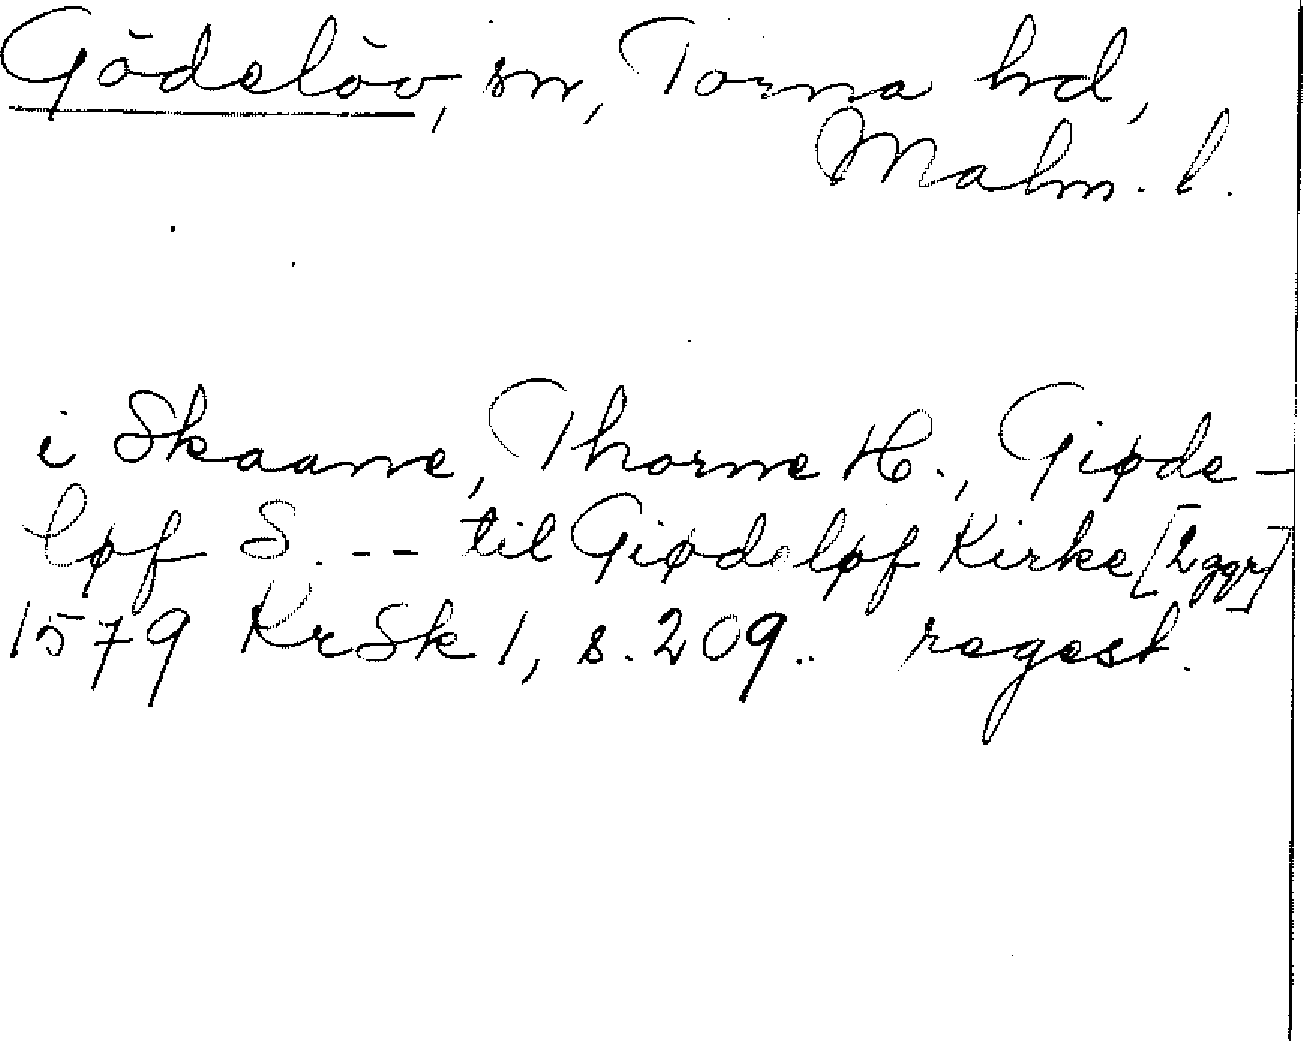 Gödelöv, sn, Torna hd,
Malm. l.
i Skaane, Thorne H., Giøde-
løf S. -- til Giødeløf Kirke [2 ggr]
1579 KrSk 1, s. 209.. regest.